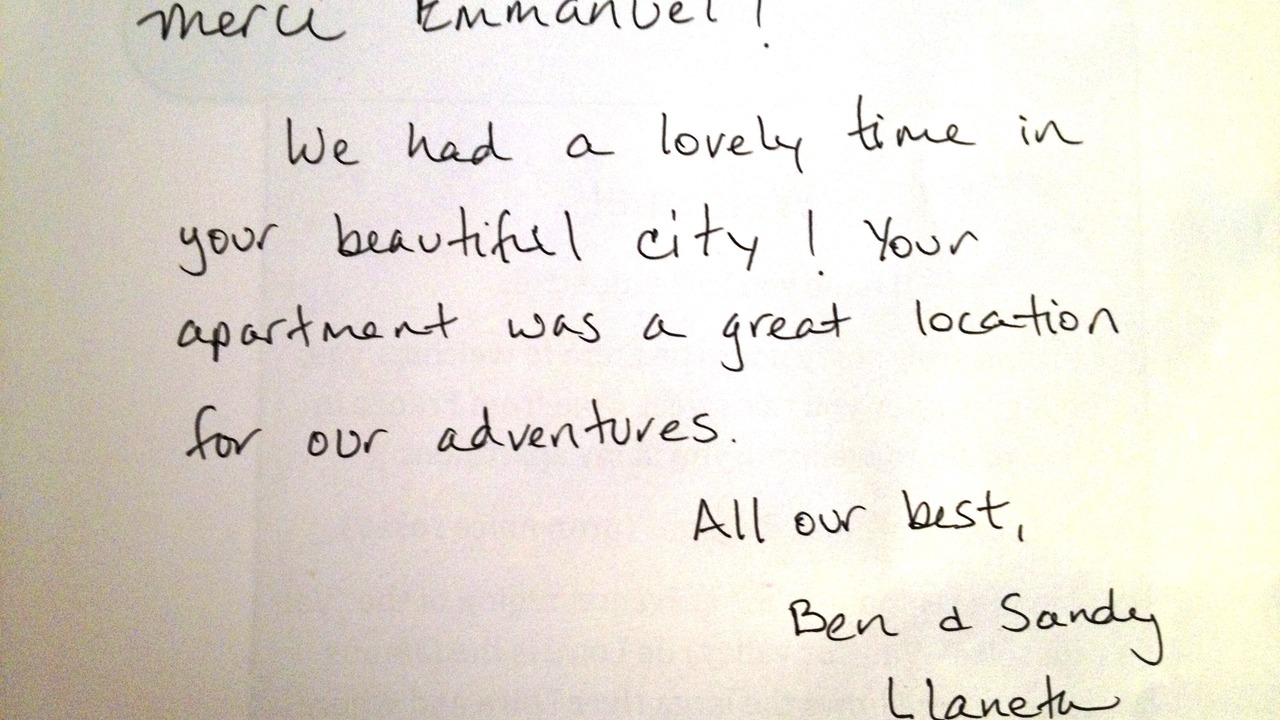 merci Emmanuel!
We had a lovely time in
your beautiful city! Your
apartment was a great location
for our adventures.
All our best,
Ben & Sandy